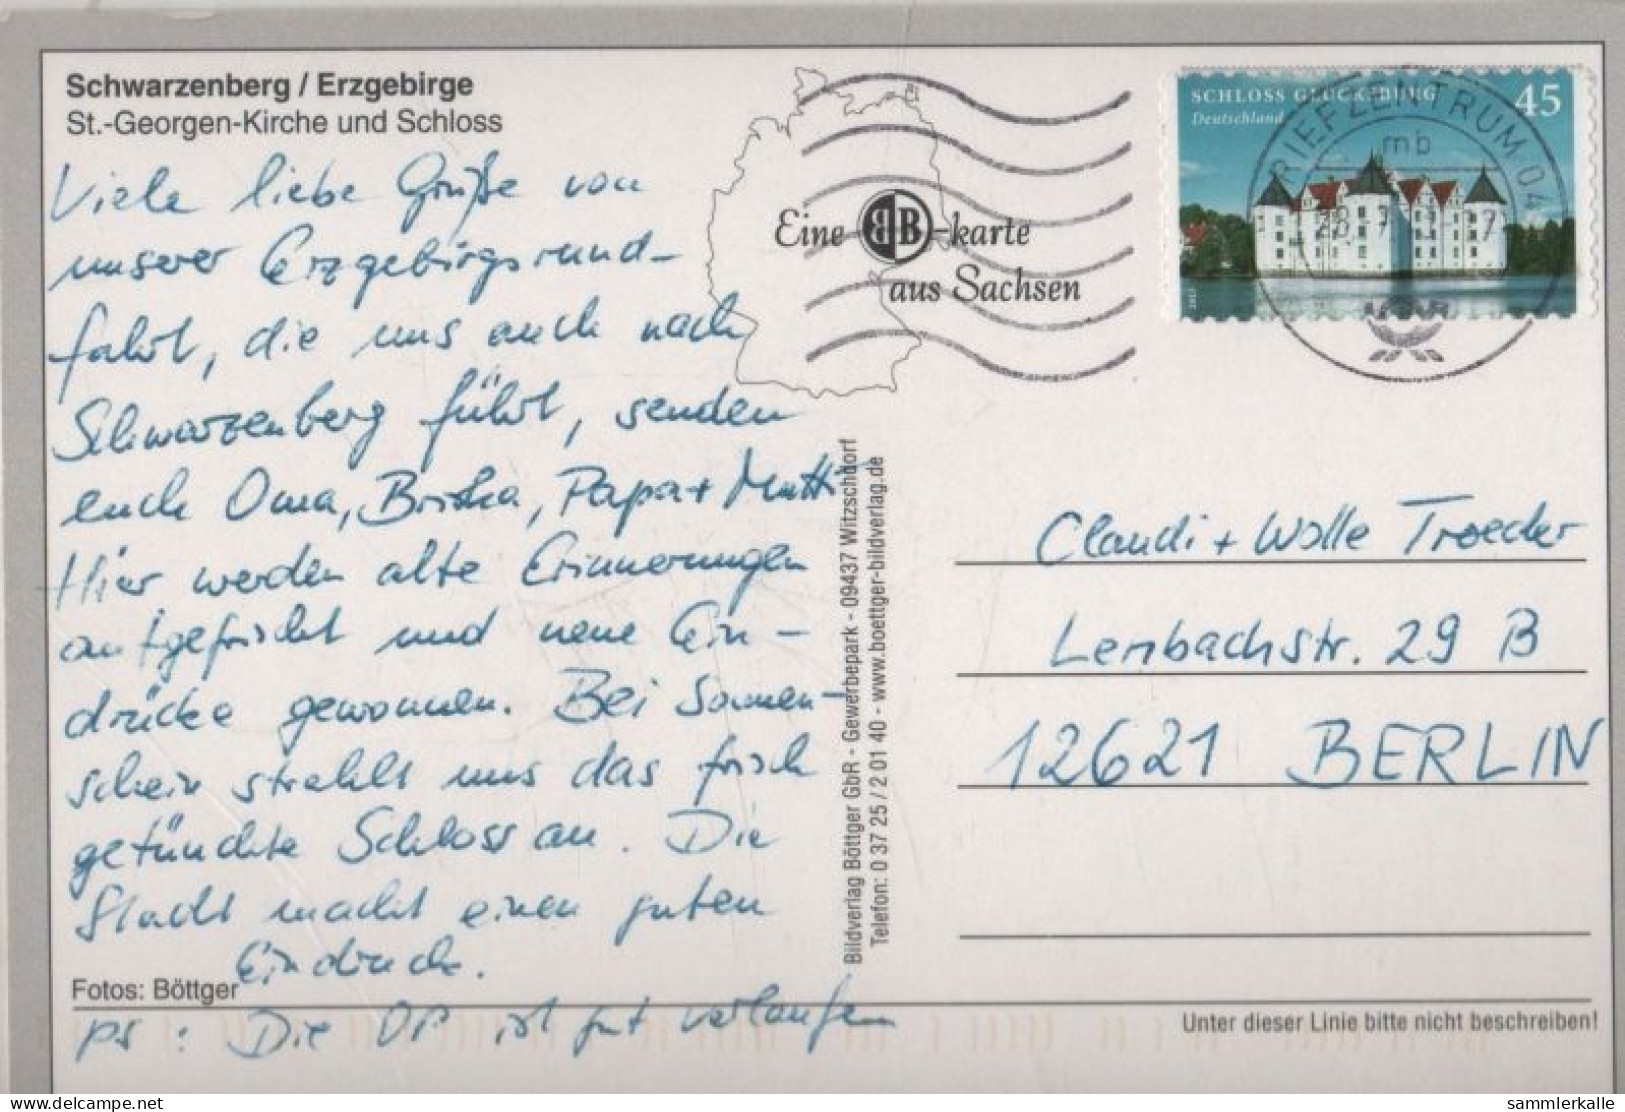 Schwarzenberg / Erzgebirge
St.-Georgen-Kirche und Schloss
Viele liebe Grüße von
unserer Erzgebirgsrund-
fahrt, die uns auch nach
Schwarzenberg führt, senden
euch Oma, Papa + Mutti
Hier werden alte Erinnerungen
aufgefrischt und neue Ein-
drücke gewonnen. Bei Sonnen-
schein strahlt uns das frisch
getünchte Schloss an. Die
Stadt macht einen guten
Eindruck.
Fotos: Böttger
PS: Die OP ist gut verlaufen
Eine BB-karte
aus Sachsen
SCHLOSS GLÜCKSBURG 45
Deutschland
BRIEFZENTRUM 04
mb
Bildverlag Böttger GbR - Gewerbepark - 09437 Witzschdorf
Telefon: 0 37 25 / 2 01 40 - www.boettger-bildverlag.de
Claudi + Wolle Troecker
Lenbachstr. 29 B
12621 BERLIN
Unter dieser Linie bitte nicht beschreiben!
www.delcampe.net
sammlerkalle